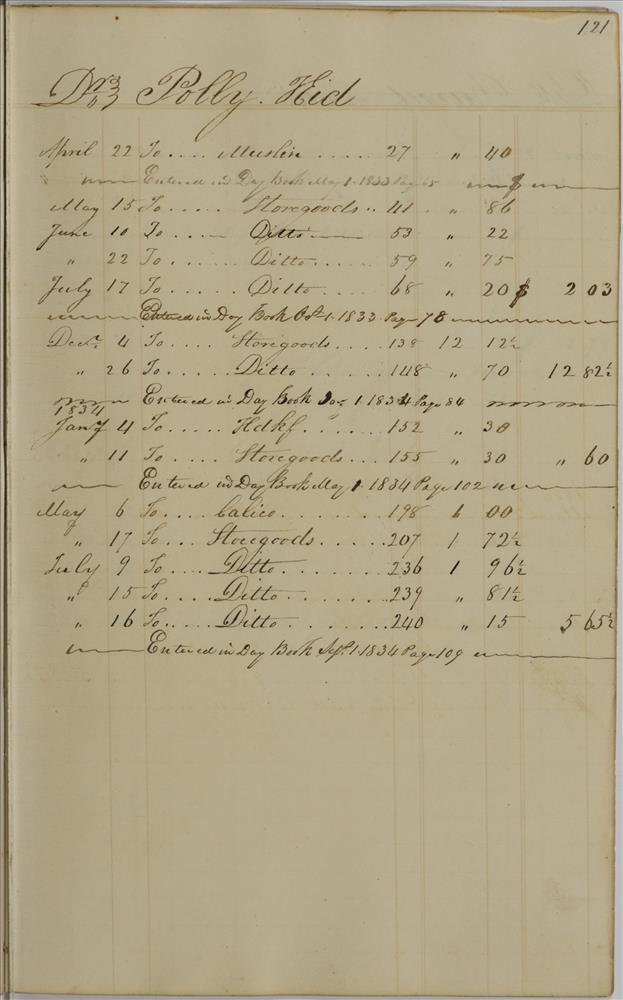 121
Dr Polly. Hid
April 22 To .... Muslin ..... 27 " 40
Entered in Day Book May 1. 1833 Page 65 $
May 15 To ..... Storegoods .. 41 " 86
June 10 To ..... Ditto 53 " 22
" 22 To ...... Ditto ...... 59 " 75
July 17 To ..... Ditto ...... 68 " 20 $ 2 03
Entered in Day Book Oct 1. 1833 Page 78
Decr. 4 To .... Storegoods .... 138 12 12½
" 26 To ..... Ditto ....... 148 " 70 12 82½
Entered in Day Book 1 1834 Page 84
1834
Jany 4 To .... Hdkf. ..... 152 " 30
" 11 To .... Storegoods ... 155 " 30 " 60
Entered in Day Book May 1. 1834 Page 102
May 6 To .... Calico ....... 198 1 00
" 17 To .... Storegoods ..... 207 1 72½
July 9 To .... Ditto ....... 236 1 96½
" 15 To .... Ditto ....... 239 " 81½
" 16 To ..... Ditto ....... 240 " 15 5 65½
Entered in Day Book Sept. 1. 1834 Page 109